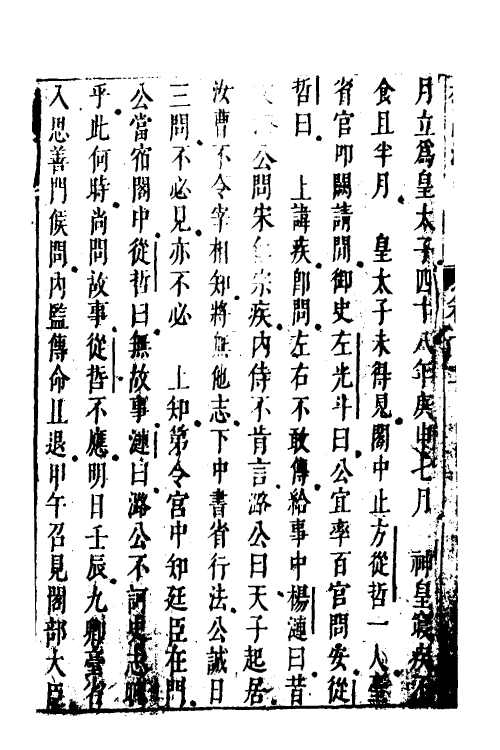 月立爲皇太子四十八年庚申七月　神皇寢疾不
食且半月　皇太子未得見閣中止方從哲一人臺
省官叩閽請問御史左光斗曰公宜率百官問安從
哲曰　上諱疾卽問左右不敢傳給事中楊漣曰昔
公問宋仁宗疾內侍不肯言潞公曰天子起居
汝曹不令宰相知將無他志下中書省行法公誠日
三問不必見亦不必　上知第令宮中知廷臣在門
公當宿閣中從哲曰無故事漣曰潞公不訶史志聰
乎此何時尚問故事從哲不應明日壬辰九卿臺省
入思善門候問內監傳命且退甲午召見閣部大臣